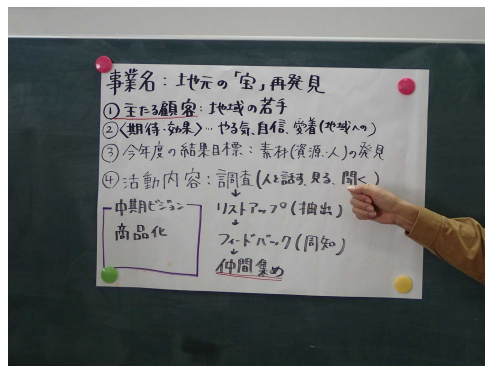 事業名：地元の「宝」再発見
①主たる顧客：地域の若手
②〈期待・効果〉…やる気、自信、愛着(地域への)
③今年度の結果目標：素材(資源・人)の発見
④活動内容：調査(人と話す、見る、聞く)
↓
リストアップ(抽出)
↓
フィードバック(周知)
↓
仲間集め
中期ビジョン
商品化